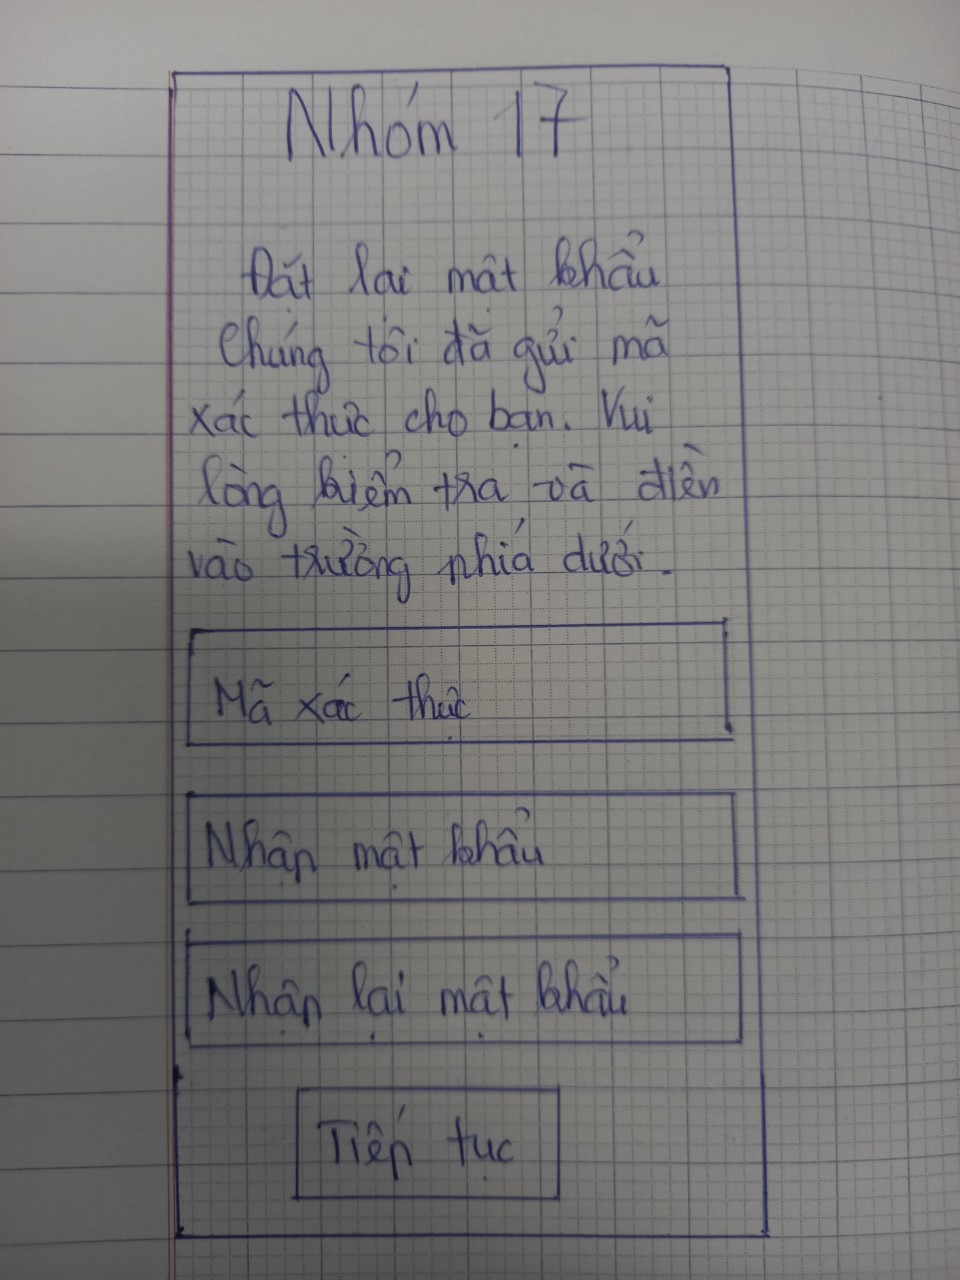 Nhóm 17
Đặt lại mật khẩu
Chúng tôi đã gửi mã
xác thực cho bạn. Vui
lòng kiểm tra và điền
vào trường phía dưới.
Mã xác thực
Nhận mật khẩu
Nhận lại mật khẩu
Tiếp tục